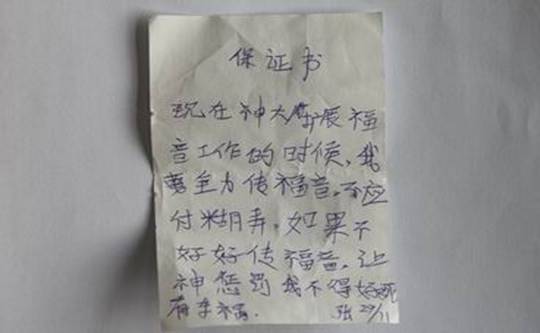 保证书
现在神大扩展福
音工作的时候,我
要全力传福音,不应
付糊弄,如果不
好好传福音,让
神惩罚我不得好死
有车祸. 张 27/11